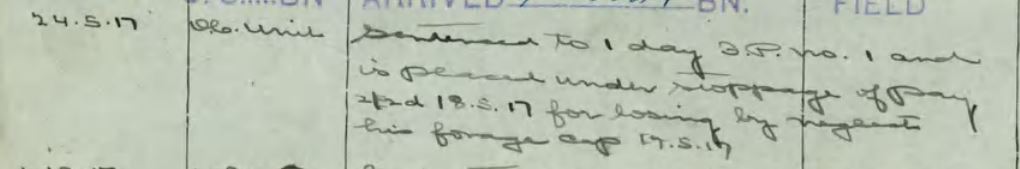 ARRIVED BN. FIELD
24.5.17 O.C. Unit Sentenced to 1 day F.P. no. 1 and
is placed under stoppage of pay
2/2d 18.5.17 for losing by neglect
his forage cap 17.5.17